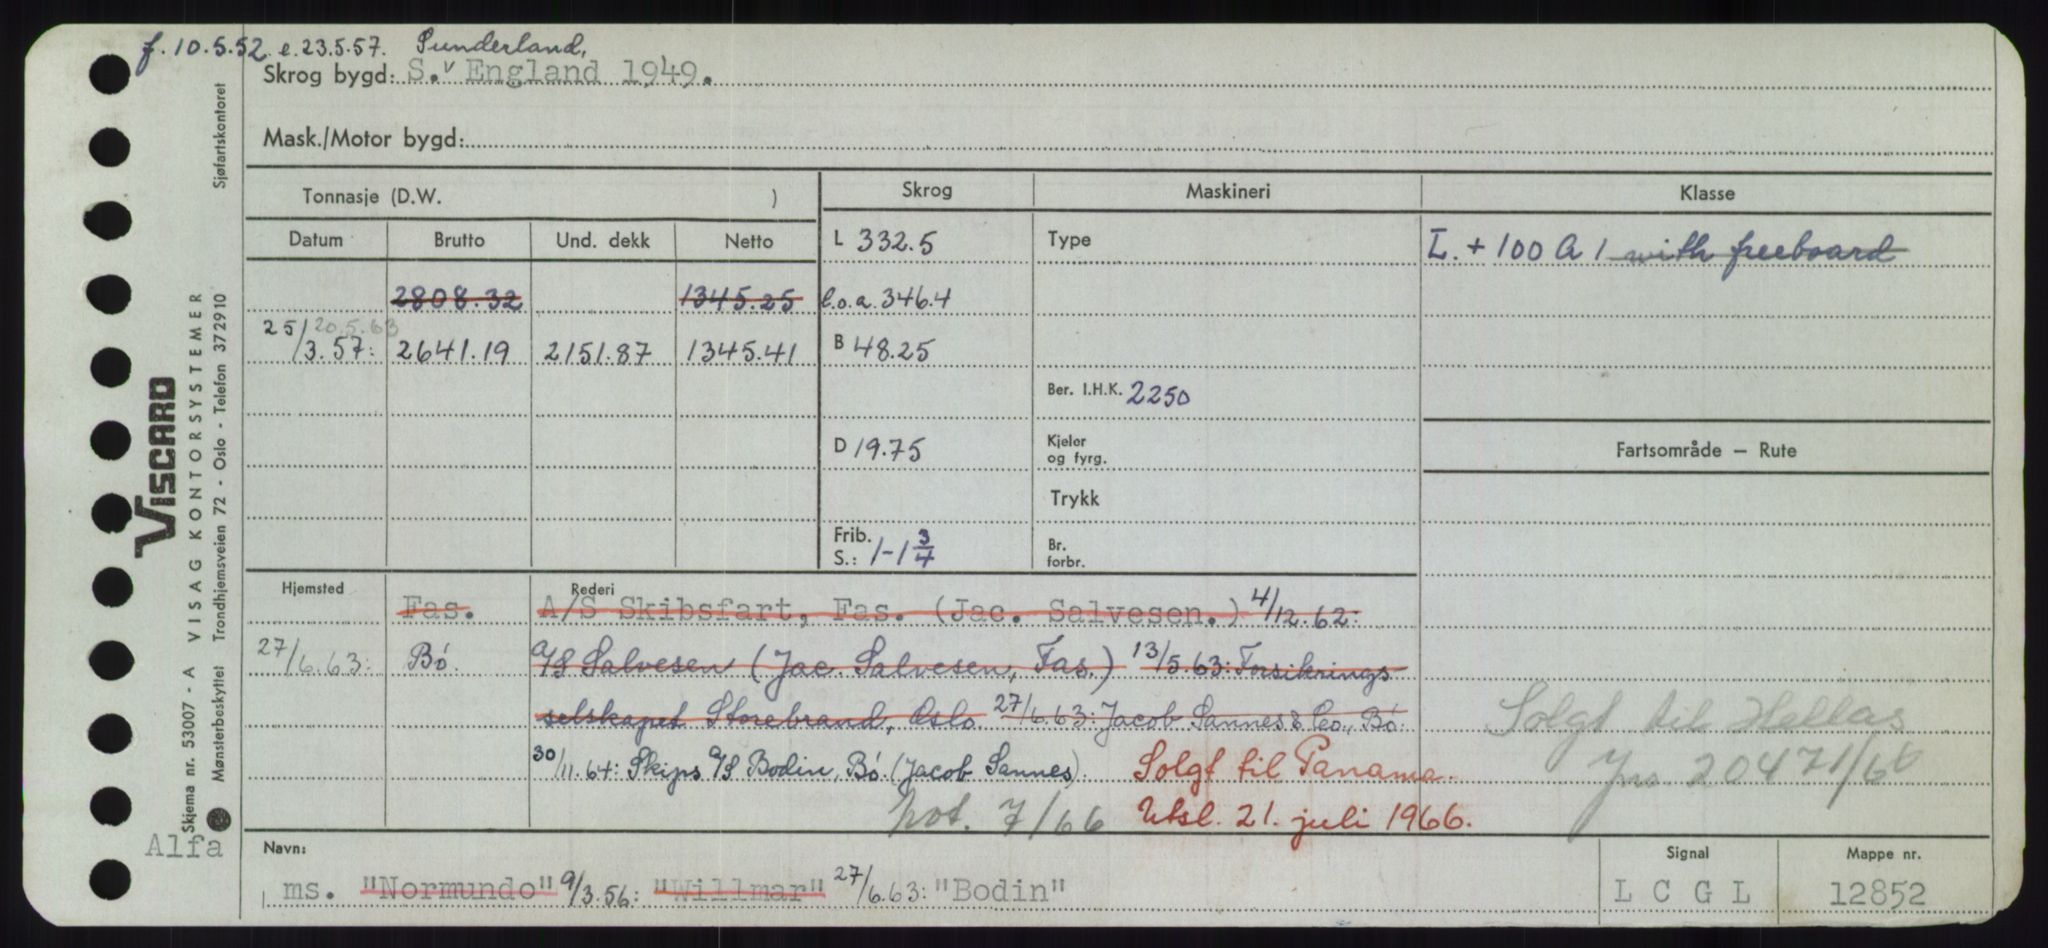 f. 10.5.52 e. 23.5.57. Sunderland,
Skrog bygd: S. v England 1949.
Mask./Motor bygd:
Tonnasje (D.W. )
Skrog
Maskineri
Klasse
Datum Brutto Und. dekk Netto
L 332.5
Type
L. + 100 A 1 with freeboard
2808.32 1345.25
l.o.a. 346.4
20.5.63
25/3.57: 2641.19 2151.87 1345.41
B 48.25
Ber. I.H.K. 2250
D 19.75
Kjeler
og fyrg.
Fartsområde – Rute
Trykk
Frib.
S.: 1-1 3/4
Br.
forbr.
Hjemsted
Rederi
Fas. A/S Skibsfart, Fas. (Jac. Salvesen.) 4/12.62:
27/6.63: Bø. A/S Salvesen (Jac. Salvesen, Fas.) 13/5.63: Forsikrings
selskapet Storebrand, Oslo 27/6.63: Jacob Sannes & Co., Bø.
30/11.64: Skips A/S Bodin, Bø (Jacob Sannes). Solgt til Panama.
not. 7/66 Utsl. 21. juli 1966.
Solgt til Hellas
Jnr. 20471/66
Navn:
ms. "Normundo" 9/3.56: "Willmar" 27/6.63: "Bodin"
Signal
L C G L
Mappe nr.
12852
Alfa
VISCARD
Skjema nr. 53007 - A VISAG KONTORSYSTEMER
Mønsterbeskyttet Trondhjemsveien 72 - Oslo - Telefon 37 29 10 Sjøfartskontoret